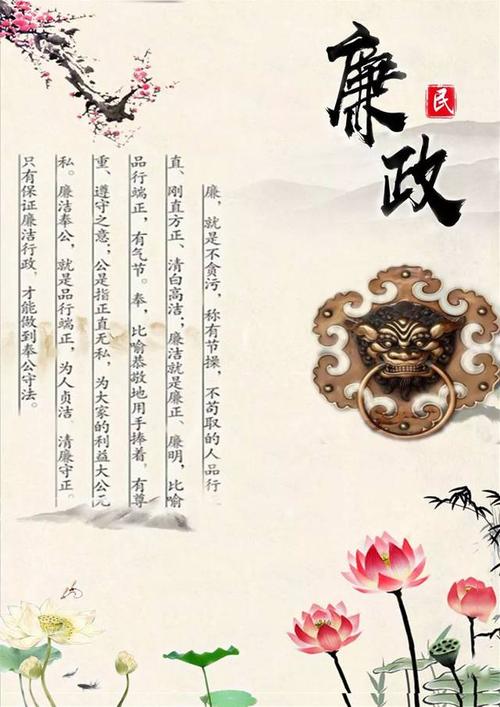 廉政
民
廉，就是不贪污，称有节操，不苟取的人品行
直、刚直方正、清白高洁；廉洁就是廉正、廉明，比喻
品行端正，有气节。奉，比喻恭敬地用手捧着，有尊
重、遵守之意，公是指正直无私，为大家的利益大公无
私。廉洁奉公，就是品行端正，为人贞洁、清廉守正。
只有保证廉洁行政，才能做到奉公守法。